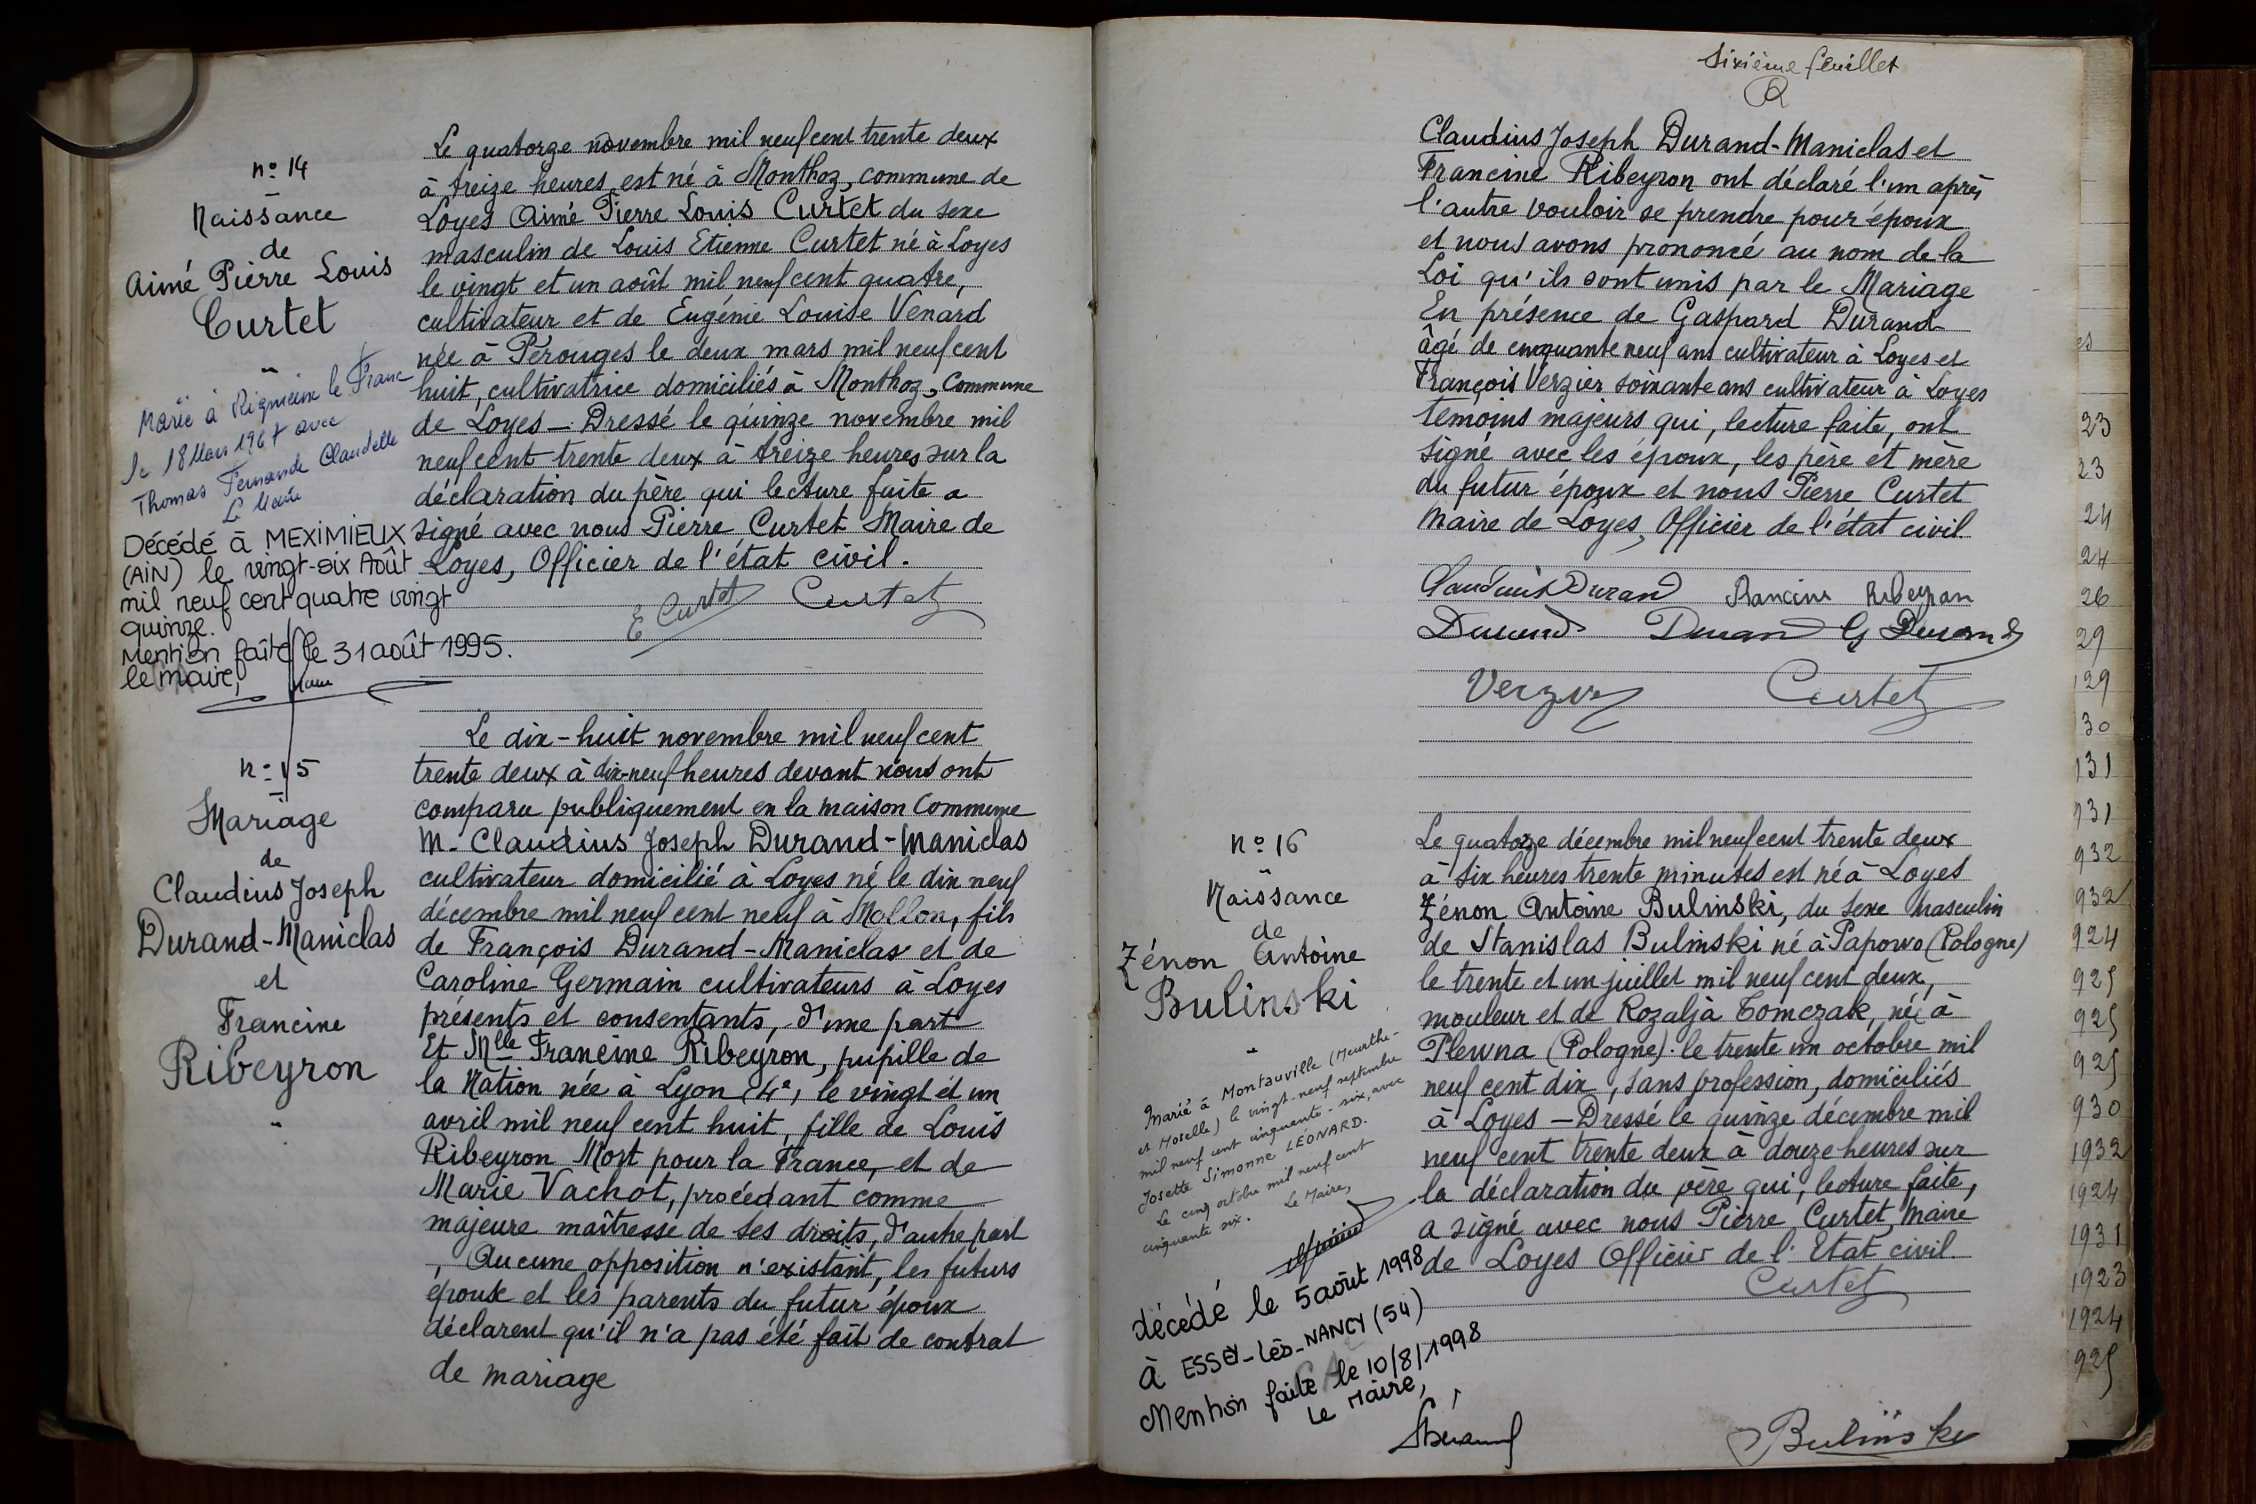 n° 14
Naissance
de
Aimé Pierre Louis
Curtet
Marié à Rignieux le Franc
le 18 Mars 1967 avec
Thomas Fernande Claudette
Le Maire
Décédé à MEXIMIEUX
(AIN) le vingt-six Août
mil neuf cent quatre vingt
quinze.
Mention faite le 31 août 1995.
le maire,
Le quatorze novembre mil neuf cent trente deux
à treize heures est né à Monthoz, commune de
Loyes Aimé Pierre Louis Curtet du sexe
masculin de Louis Etienne Curtet né à Loyes
le vingt et un août mil neuf cent quatre,
cultivateur et de Eugénie Louise Venard
née à Pérouges le deux mars mil neuf cent
huit, cultivatrice domiciliés à Monthoz, Commune
de Loyes — Dressé le quinze novembre mil
neuf cent trente deux à treize heures sur la
déclaration du père qui lecture faite a
signé avec nous Pierre Curtet Maire de
Loyes, Officier de l'état civil.
E Curtet Curtet
n° 15
Mariage
de
Claudius Joseph
Durand-Maniclas
et
Francine
Ribeyron
Le dix-huit novembre mil neuf cent
trente deux à dix-neuf heures devant nous ont
comparu publiquement en la maison Commune
M. Claudius Joseph Durand-Maniclas
cultivateur domicilié à Loyes né le dix neuf
décembre mil neuf cent neuf à Mollon, fils
de François Durand-Maniclas et de
Caroline Germain cultivateurs à Loyes
présents et consentants, d'une part
Et Mlle Francine Ribeyron, pupille de
la Nation née à Lyon (4e, le vingt et un
avril mil neuf cent huit, fille de Louis
Ribeyron Mort pour la France, et de
Marie Vachot, procédant comme
majeure maîtresse de ses droits, d'autre part
Aucune opposition n'existant, les futurs
époux et les parents du futur époux
déclarent qu'il n'a pas été fait de contrat
de mariage
Sixième feuillet
Claudius Joseph Durand-Maniclas et
Francine Ribeyron ont déclaré l'un après
l'autre vouloir se prendre pour époux
et nous avons prononcé au nom de la
Loi qu'ils sont unis par le Mariage
En présence de Gaspard Durand
âgé de cinquante neuf ans cultivateur à Loyes et
François Verzier soixante ans cultivateur à Loyes
témoins majeurs qui, lecture faite, ont
signé avec les époux, les père et mère
du futur époux et nous Pierre Curtet
Maire de Loyes, Officier de l'état civil.
Claudius Durand Francine Ribeyron
Durand Durand G Durand
Verzier Curtet
n° 16
Naissance
de
Zénon Antoine
Bulinski
Marié à Montauville (Meurthe-
et Moselle) le vingt-neuf septembre
mil neuf cent cinquante-six, avec
Josette Simonne LÉONARD.
Le cinq octobre mil neuf cent
cinquante six. Le Maire,
décédé le 5 août 1998
à ESSEY-Lès-NANCY (54)
Mention faite le 10/8/1998
Le Maire,
Le quatorze décembre mil neuf cent trente deux
à six heures trente minutes est né à Loyes
Zénon Antoine Bulinski, du sexe masculin
de Stanislas Bulinski né à Papowo (Pologne)
le trente et un juillet mil neuf cent deux,
mouleur et de Rozalja Tomczak, née à
Plewna (Pologne) le trente un octobre mil
neuf cent dix, sans profession, domiciliés
à Loyes — Dressé le quinze décembre mil
neuf cent trente deux à douze heures sur
la déclaration du père qui, lecture faite,
a signé avec nous Pierre Curtet, Maire
de Loyes Officier de l'Etat civil.
Curtet
Bulinski
es
23
23
24
24
26
29
129
30
131
931
932
932
924
925
925
925
930
1932
1924
1931
1923
1924
925